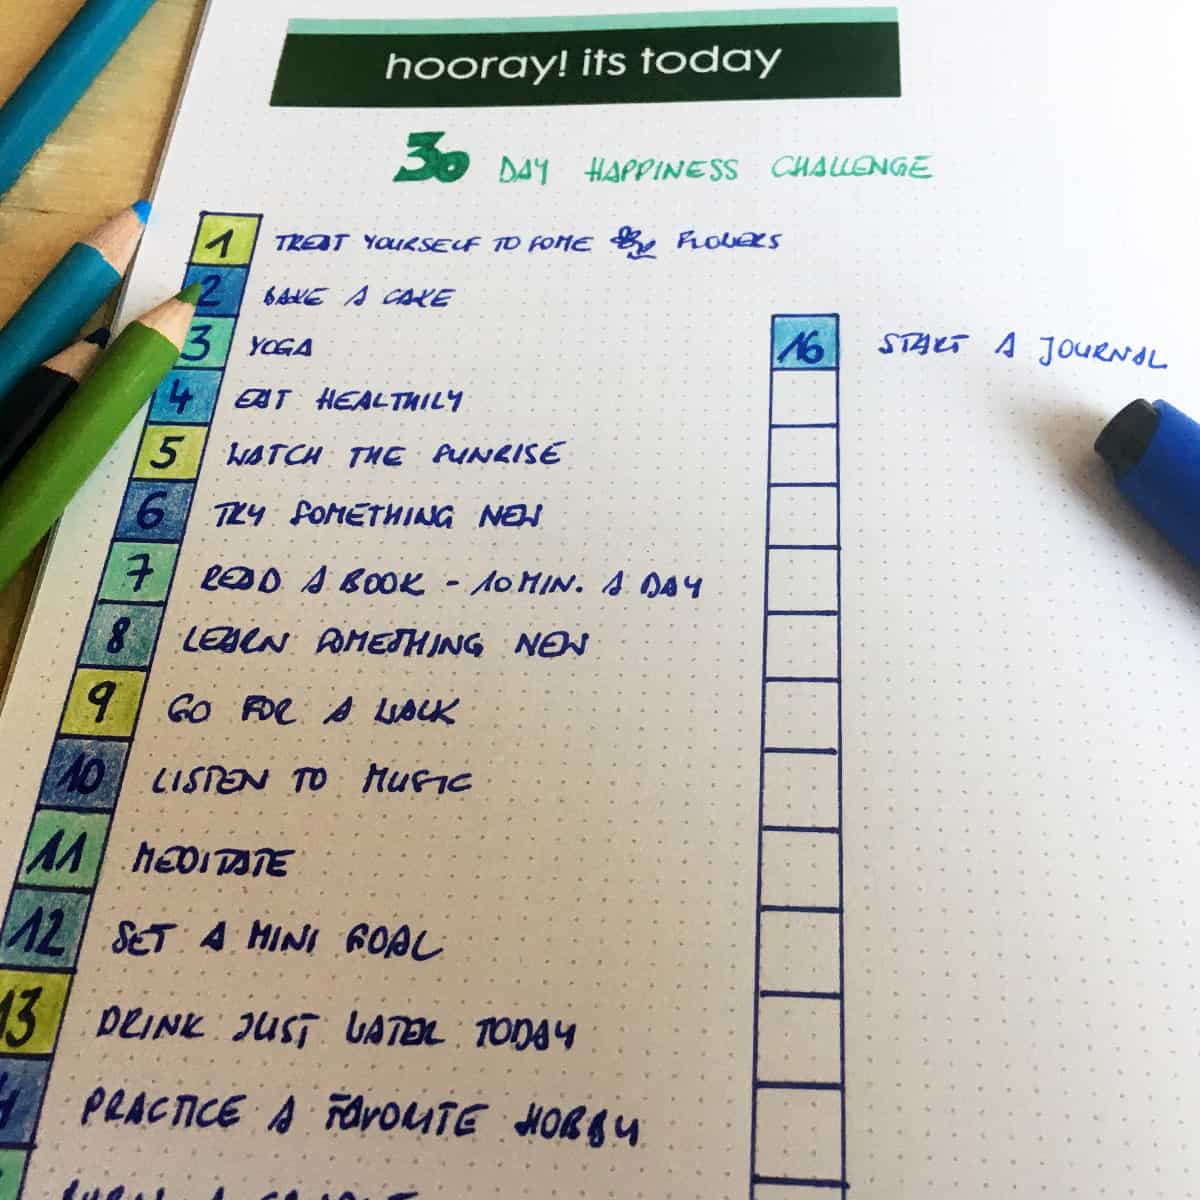 hooray! its today
30 DAY HAPPINESS CHALLENGE
1 TREAT YOURSELF TO SOME FLOWERS
2 BAKE A CAKE
3 YOGA
4 EAT HEALTHILY
5 WATCH THE SUNRISE
6 TRY SOMETHING NEW
7 READ A BOOK - 10 MIN. A DAY
8 LEARN SOMETHING NEW
9 GO FOR A WALK
10 LISTEN TO MUSIC
11 MEDITATE
12 SET A MINI GOAL
13 DRINK JUST WATER TODAY
PRACTICE A FAVORITE HOBBY
16 START A JOURNAL